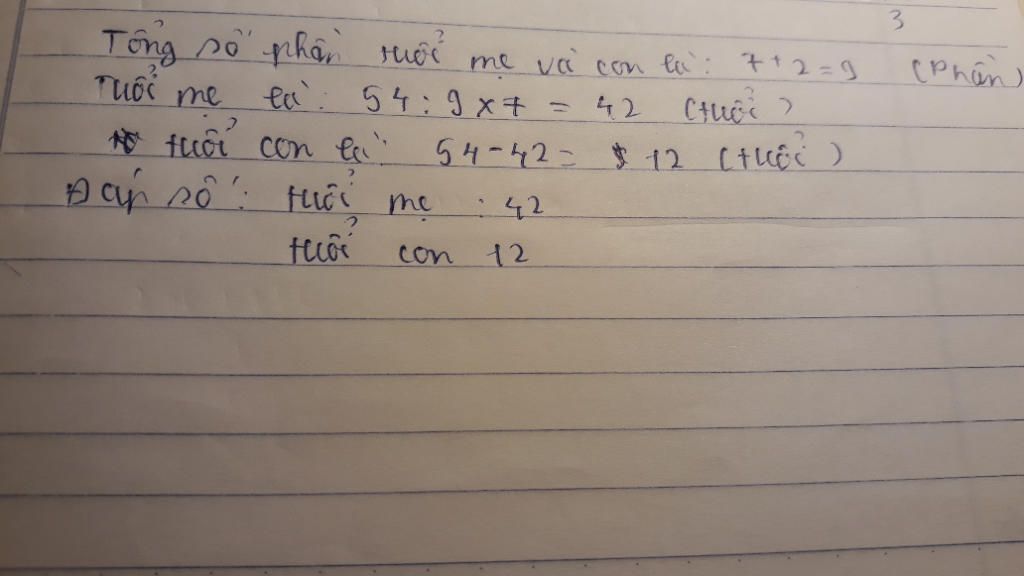 3
Tổng số phần tuổi mẹ và con là: 7+2=9 (Phần)
Tuổi mẹ là: 54:9x7 = 42 (tuổi)
tuổi con là: 54-42= 12 (tuổi)
Đáp số: tuổi mẹ : 42
tuổi con 12